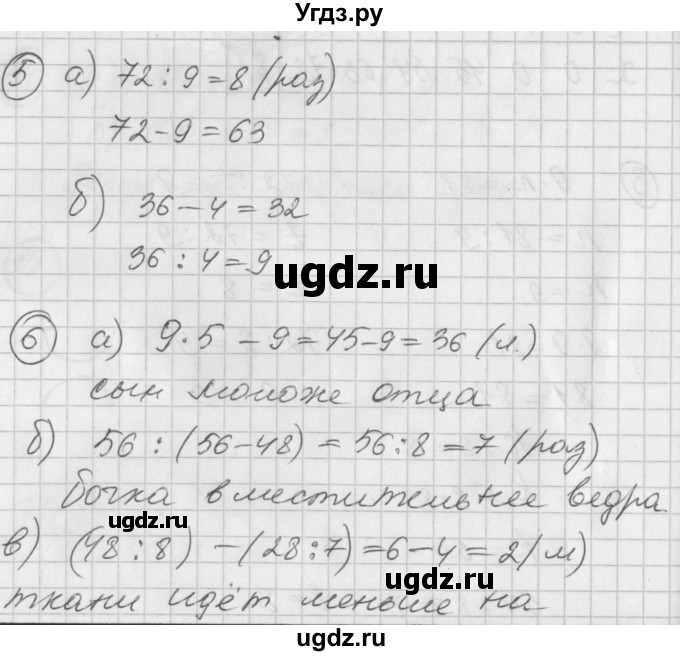 Угдз.ру
5 а) 72 : 9 = 8 (раз)
72 - 9 = 63
б) 36 - 4 = 32
36 : 4 = 9
ugdz.ru
6 а) 9 · 5 - 9 = 45 - 9 = 36 (л.)
сын моложе отца
б) 56 : (56 - 48) = 56 : 8 = 7 (раз)
бочка вместительнее ведра
ugdz.ru
в) (48 : 8) - (28 : 7) = 6 - 4 = 2 (м)
ugdz.ru
ткани идёт меньше на
ugdz.ru